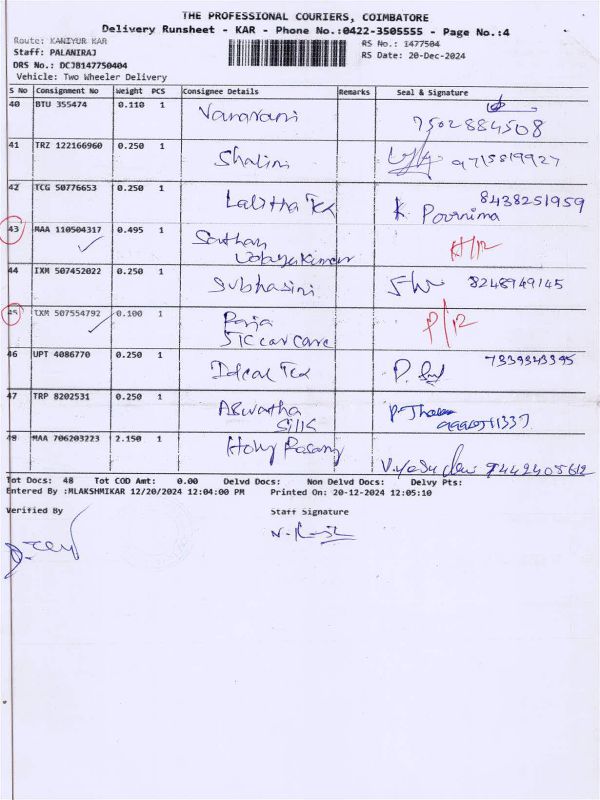 THE PROFESSIONAL COURIERS, COIMBATORE
Delivery Runsheet - KAR - Phone No.:0422-3505555 - Page No.:4
Route: KANIYUR KAR RS No.: 1477504
Staff: PALANIRAJ RS Date: 20-Dec-2024
DRS No.: DCJB147750404
Vehicle: Two Wheeler Delivery
S No Consignment No Weight PCS Consignee Details Remarks Seal & Signature
40 BTU 355474 0.110 1 7502884508
41 TRZ 122166960 0.250 1 Shalini 9715819927
42 TCG 50776653 0.250 1 Lalitha Tex K. Poornima 8438251959
43 MAA 110504317 0.495 1
44 IXM 507452022 0.250 1 Subhasini 8248949145
45 IXM 507554792 0.100 1 Raja
STC car care
46 UPT 4086770 0.250 1 Ideal Tex 7339343395
47 TRP 8202531 0.250 1 Aswatha
Silk
48 MAA 706203223 2.150 1 9442405612
Tot Docs: 48 Tot COD Amt: 0.00 Delvd Docs: Non Delvd Docs: Delvy Pts:
Entered By :MLAKSHMIKAR 12/20/2024 12:04:00 PM Printed On: 20-12-2024 12:05:10
Verified By Staff Signature